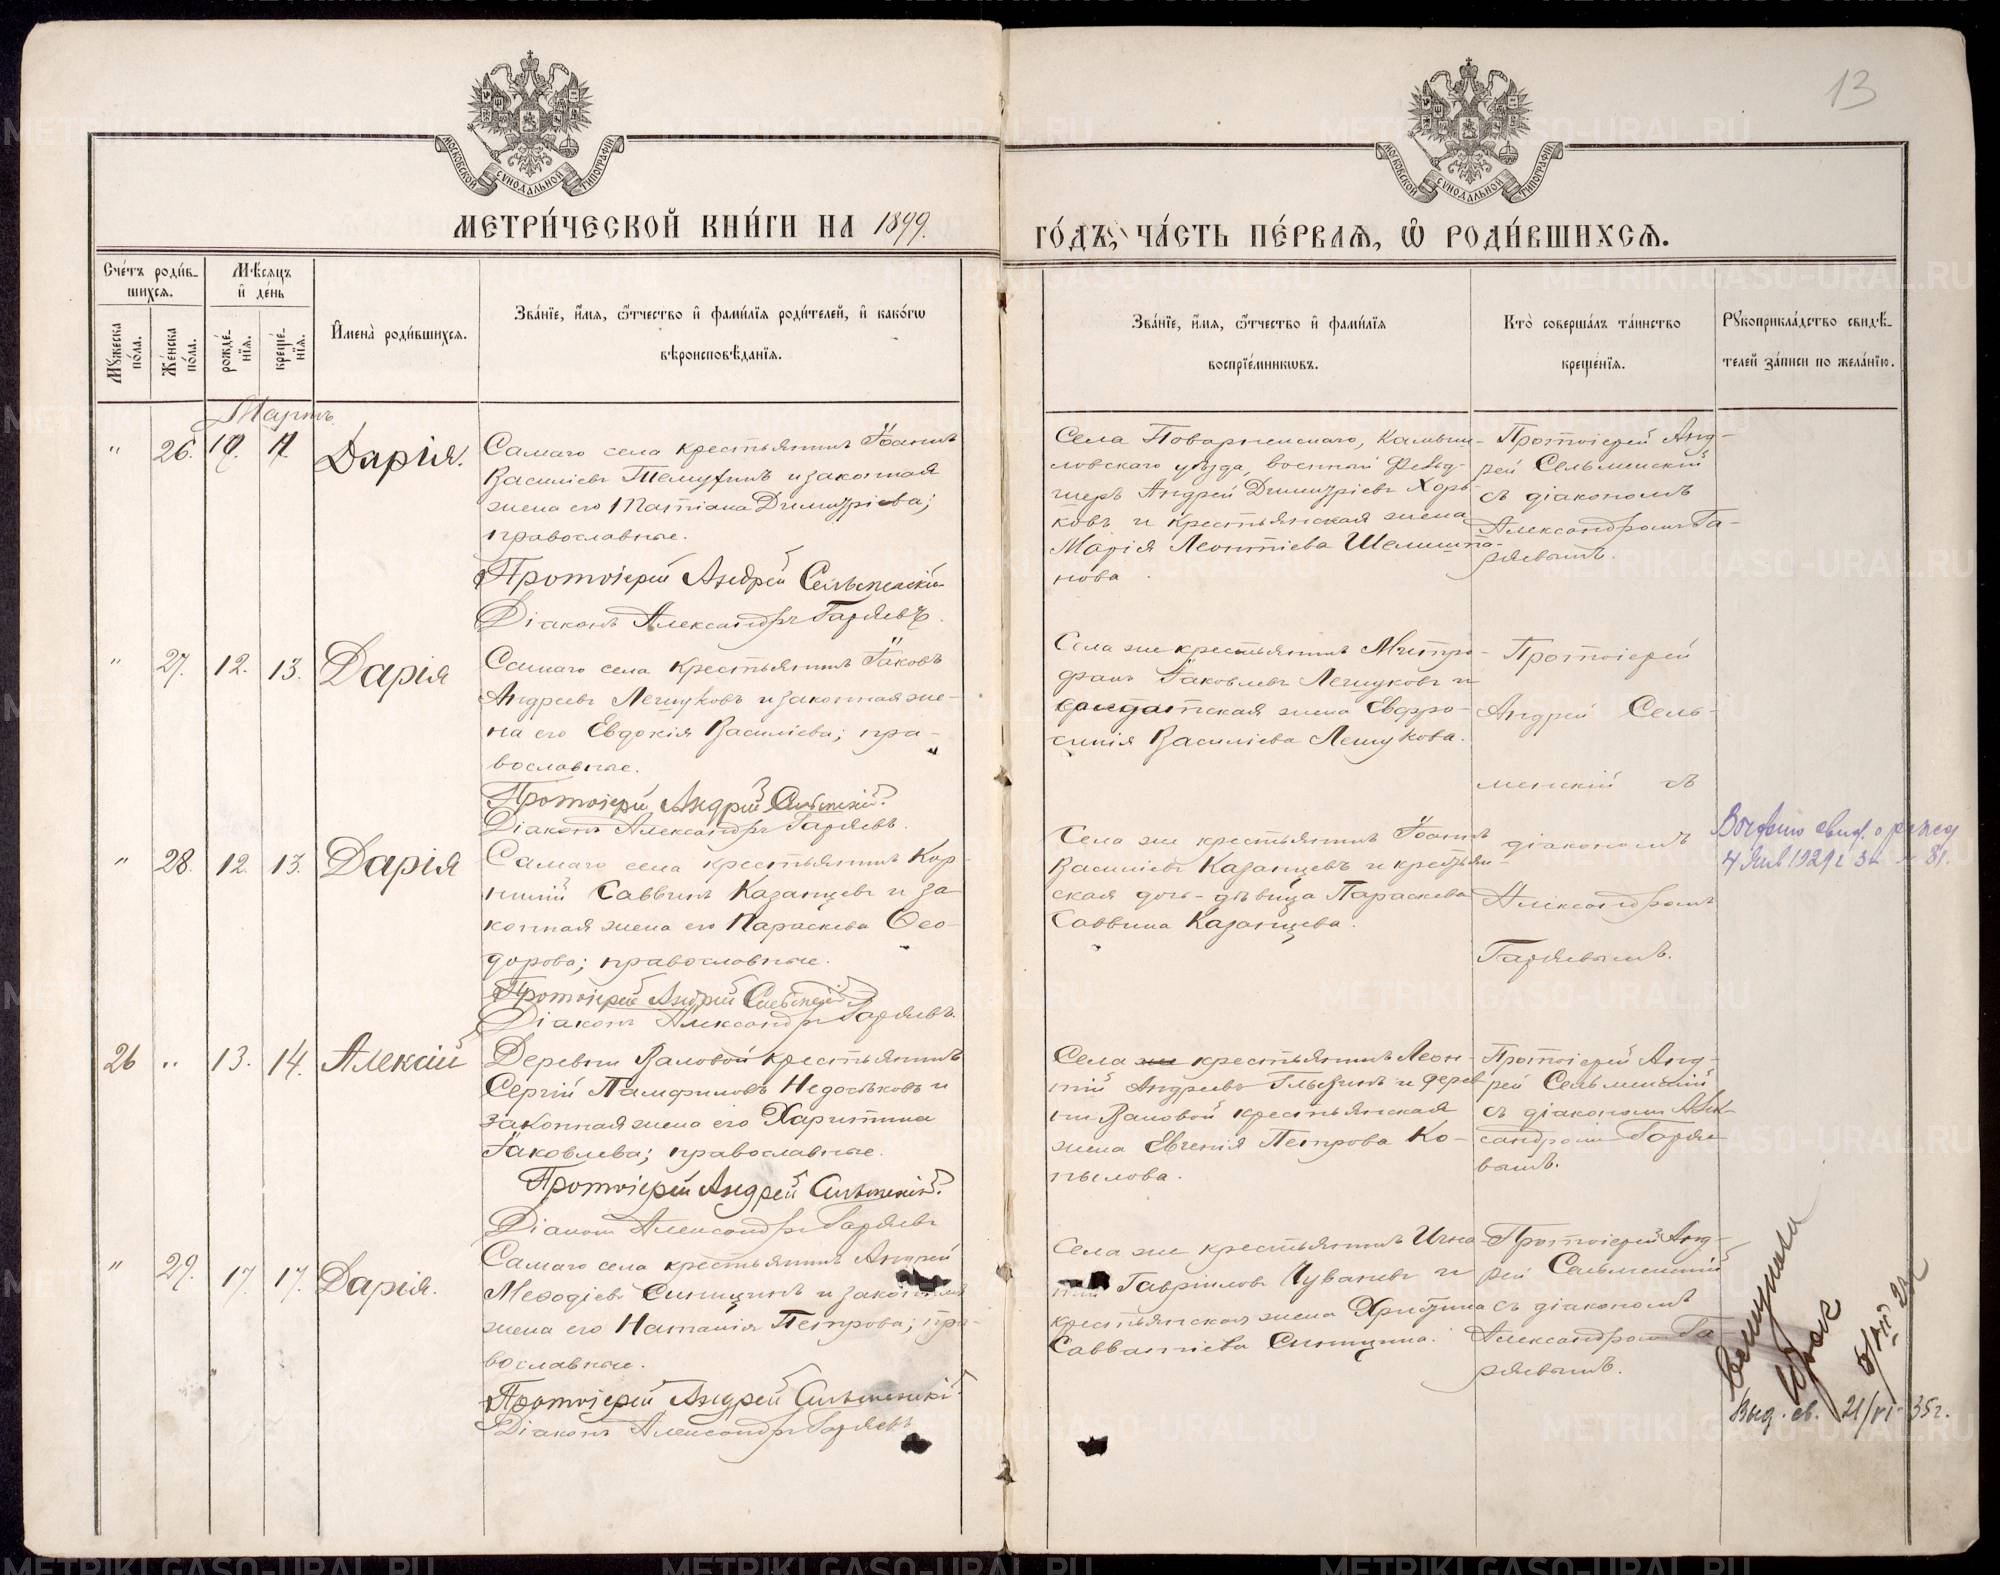 13
МОСКОВСКОЙ СУНОДАЛЬНОЙ ТИПОГРАФІИ
МОСКОВСКОЙ СУНОДАЛЬНОЙ ТИПОГРАФІИ
МЕТРИ́ЧЕСКОЙ КНИ́ГИ НА 1899.
ГО́ДЪ, ЧА́СТЬ ПЕ́РВАѦ, Ѡ РОДИ́ВШИХСѦ.
Сче́тъ роди́в-
шихсѧ.
Мѣсѧцъ
и де́нь
Мꙋжеска
по́ла.
Же́нска
по́ла.
рожде́-
нїѧ.
креще́-
нїѧ.
Имена̀ роди́вшихсѧ.
Зва́нїе, и́мѧ, ѻ́тчество и фами́лїѧ роди́телей, и како́гѡ
вѣроисповѣ́данїѧ.
Зва́нїе, и́мѧ, ѻ́тчество и фами́лїѧ
воспрїе́мникѡвъ.
Кто̀ соверша́лъ та́инство
креще́нїѧ.
Рꙋкоприкла́дство свидѣ́-
телей за́писи по жела́нїю.
Мартъ
" 26. 10. 11. Дарія.
Самаго села крестьянинъ Іоаннъ
Василіевъ и законная
жена его Татіана Димитріева;
православные.
Протоіерей Андрей Сельменскій
Діаконъ Александръ Гаряевъ.
Села Поварненскаго, Камыш-
ловскаго уѣзда, военный фельд-
шеръ Андрей Димитріевъ Хорь-
ковъ и крестьянская жена
Марія Леонтіева Шелишпа-
нова.
Протоіерей Анд-
рей Сельменскій
съ діакономъ
Александромъ Га-
ряевымъ.
" 27. 12. 13. Дарія
Самаго села крестьянинъ Іаковъ
Андреевъ Лешуковъ и законная же-
на его Евдокія Василіева; пра-
вославные.
Протоіерей Андрей Сельменскій.
Діаконъ Александръ Гаряевъ.
Села же крестьянинъ Митро-
фанъ Іаковлевъ Лешуковъ и
солдатская жена Евфро-
синія Василіева Лешукова.
Протоіерей
Андрей Сель-
менскій съ
діакономъ
Александромъ
Гаряевымъ.
" 28. 12. 13. Дарія
Самаго села крестьянинъ Кор-
нилій Саввинъ Казанцевъ и за-
конная жена его Параскева Ѳео-
дорова; православные.
Протоіерей Андрей Сельменскій
Діаконъ Александръ Гаряевъ.
Села же крестьянинъ Іоаннъ
Василіевъ Казанцевъ и крестьян-
ская дочь-дѣвица Параскева
Саввина Казанцева.
4 Янв 1929 г за № 81.
26 " 13. 14. Алексій
Деревни Валовой крестьянинъ
Сергій Памфиловъ Недосѣковъ и
законная жена его Харитина
Іаковлева; православные.
Протоіерей Андрей Сельменскій.
Діаконъ Александръ Гаряевъ
Села же крестьянинъ Леон-
тій Андреевъ Глызинъ и дерев
ни Валовой крестьянская
жена Евгенія Петрова Ко-
пылова.
Протоіерей Анд-
рей Сельменскій
съ діакономъ Алек-
сандромъ Гаряе-
вымъ.
" 29. 17. 17. Дарія.
Самаго села крестьянинъ Андрей
Меѳодіевъ Синицинъ и законная
жена его Наталія Петрова; пра-
вославные.
Протоіерей Андрей Сельменскій
Діаконъ Александръ Гаряевъ
Села же крестьянинъ Игна-
тій Гавриловъ Чувашевъ и
крестьянская жена Христина
Савватіева Синицина.
Протоіерей Анд-
рей Сельменскій
съ діакономъ
Александромъ Га-
ряевымъ.
Выд. св. 21/VI-35г.
METRIKI.GASO-URAL.RU